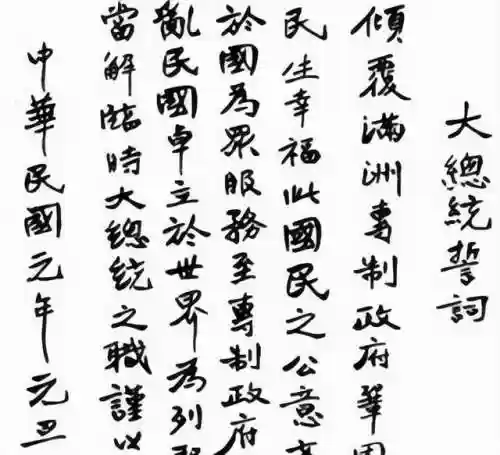 大總統誓詞
傾覆滿洲專制政府鞏固
民生幸福此國民之公意
於國為眾服務至專制政府
亂民國卓立於世界為列
當解臨時大總統之職謹以
中華民國元年元旦